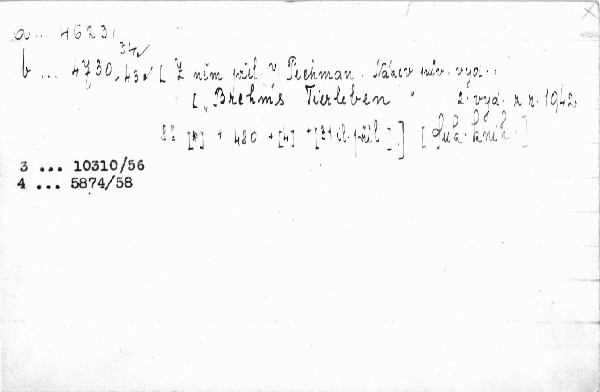 a... 4623,
34
b ... 4730,-43 [ Z něm přel. V Pechman. Název pův. vyd.:
[„Brehms Tierleben" 2. vyd. z r. 1942
8° [ ] + 480 + [4] + [31 il. příl.].] [ knih.]
3 ... 10310/56
4 ... 5874/58